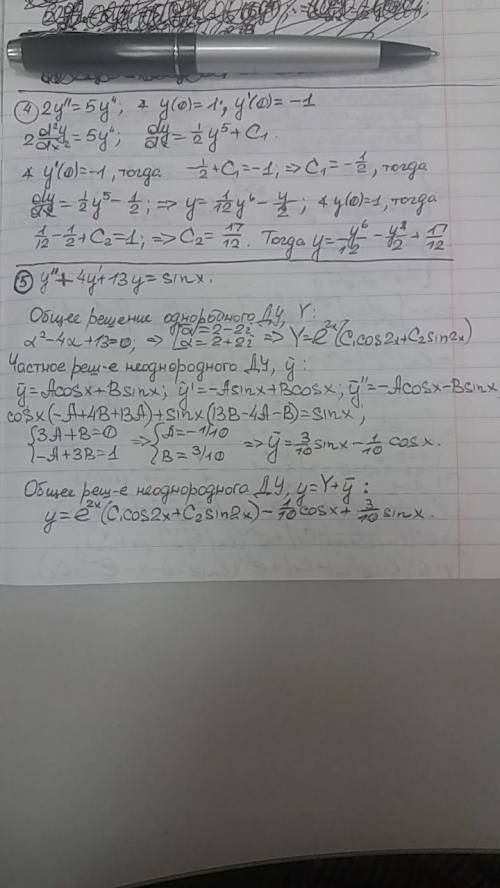 ④ 2y"=5y⁴; ∢ y(0)=1; y'(0)=-1
2 d²y/dx² =5y⁴; dy/dx = 1/2 y⁵+C₁.
∢ y'(0)=-1, тогда -1/2+C₁=-1; ⇒ C₁=-1/2, тогда
dy/dx = 1/2 y⁵ - 1/2; ⇒ y= 1/12 y⁶ - y/2; ∢ y(0)=1, тогда
1/12 - 1/2 + C₂=1; ⇒ C₂= 17/12. Тогда y= y⁶/12 - y/2 + 17/12
⑤ y"+4y'+13y=sinx.
Общее решение однородного ДУ, Y:
α²-4α+13=0; ⇒ [α=2-2i [α=2+2i ⇒ Y=e²ˣ(C₁cos2x+C₂sin2x)
Частное реш-е неоднородного ДУ, ȳ:
ȳ=Acosx+Bsinx; ȳ'=-Asinx+Bcosx; ȳ"=-Acosx-Bsinx
cosx(-A+4B+13A)+sinx(13B-4A-B)=sinx;
{3A+B=0 {-A+3B=1 ⇒ {A=-1/10 {B=3/10 ⇒ ȳ= 3/10 sinx - 1/10 cosx.
Общее реш-е неоднородного ДУ, y=Y+ȳ:
y=e²ˣ(C₁cos2x+C₂sin2x) - 1/10 cosx + 3/10 sinx.